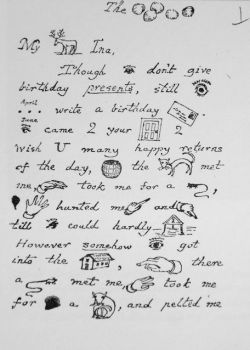 The
My Ina,
Though don't give
birthday presents, still
April
.... write a birthday
June
came 2 your 2
wish U many happy returns
of the day, the met
me, took me for a
hunted me and
till could hardly
However somehow got
into the , there
a met me, took me
for a , and pelted me